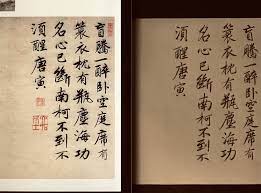 騰一醉卧空庭席有
蓑衣枕有瓶塵海功
名心已斷南柯不到不
須醒唐寅
騰一醉卧空庭席有
蓑衣枕有瓶塵海功
名心已斷南柯不到不
須醒唐寅